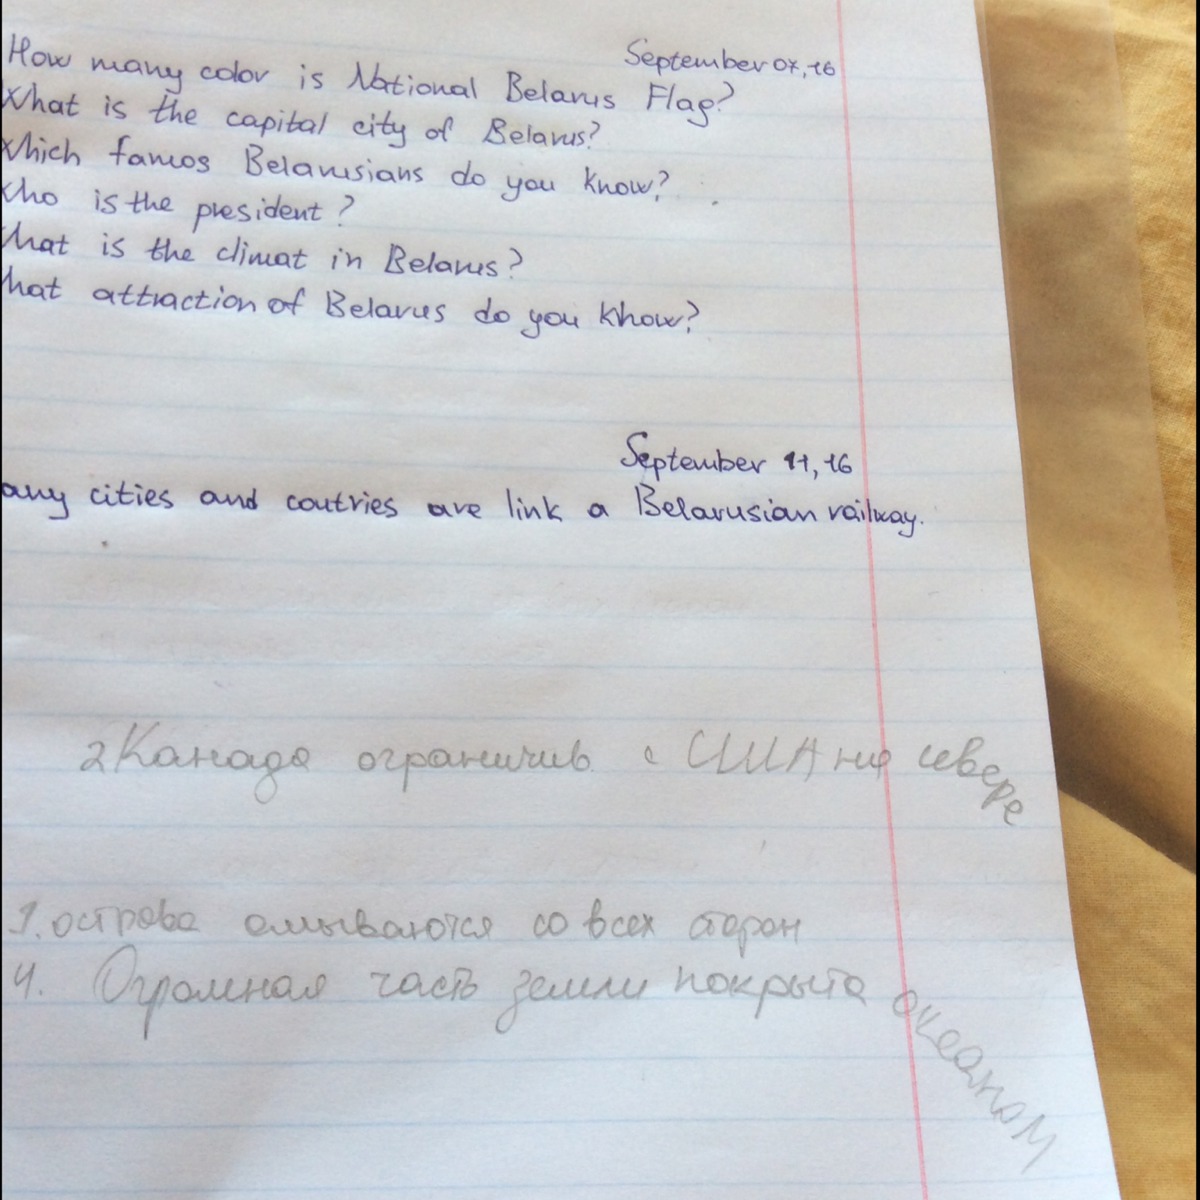 September 07, 16
How many color is National Belarus Flag?
What is the capital city of Belarus?
Which famos Belarusians do you know?
Who is the president?
hat is the climat in Belarus?
hat attraction of Belarus do you know?
September 11, 16
any cities and coutries are link a Belarusian railway.
2 Канада ограничив с США на севере
1. острова омываются со всех сторон
4. Огромная часть земли покрыта океаном